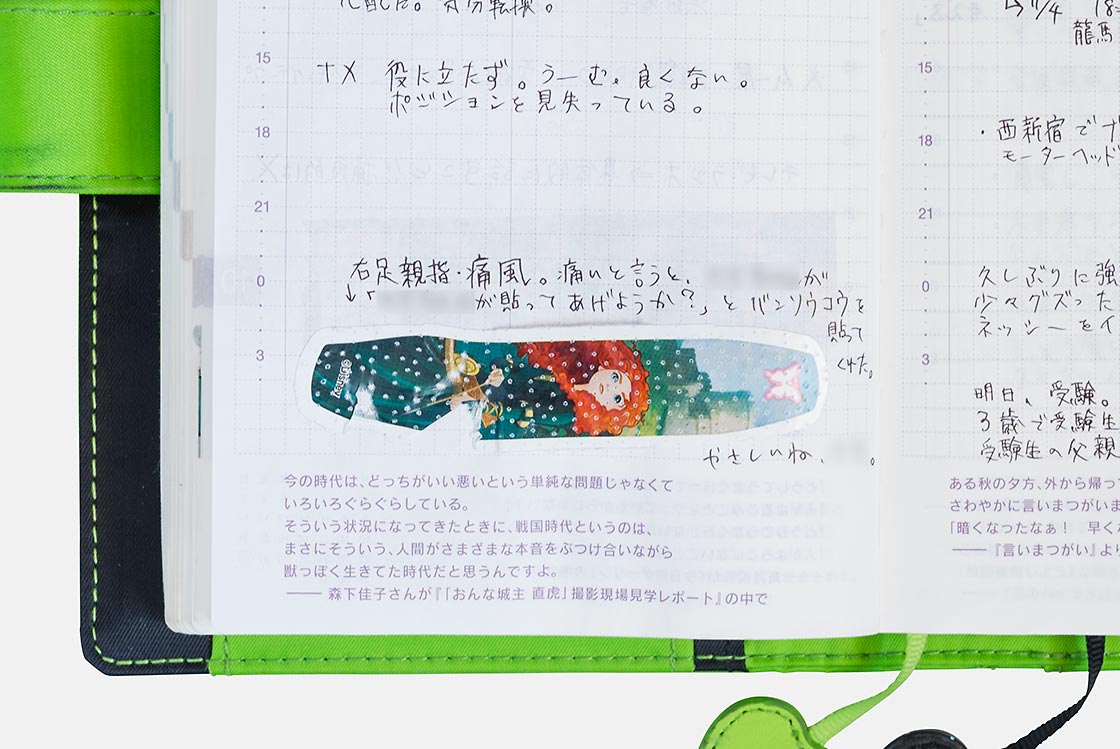 化配した。気分転換。
15
TX 役に立たず。うーむ。良くない。
ポジションを見失っている。
18
21
0
右足親指・痛風。痛いと言うと、
が
「
が貼ってあげようか?」とバンソウコウを
貼って
くれた。
3
©Disney
やさしいね、
。
今の時代は、どっちがいい悪いという単純な問題じゃなくて
いろいろぐらぐらしている。
そういう状況になってきたときに、戦国時代というのは、
まさにそういう、人間がさまざまな本音をぶつけ合いながら
獣っぽく生きてた時代だと思うんですよ。
—— 森下佳子さんが『「おんな城主 直虎」撮影現場見学レポート』の中で
→11/4 18
龍馬
15
・西新宿で
モーターヘッド
18
21
0
久しぶりに強
少々グズった
ネッシーをイ
3
明日、受験。
3歳で受験生
受験生の父親
ある秋の夕方、外から帰っ
さわやかに言いまつがいま
「暗くなったなぁ! 早くな
——『言いまつがい』より